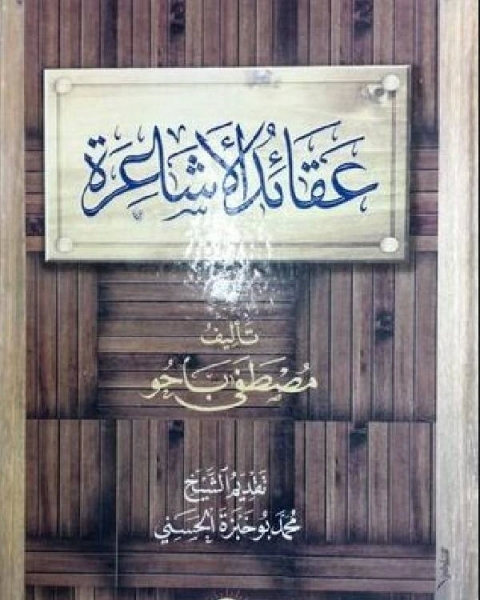 عقائد الأشاعرة
تأليف
مصطفى باحو
تقديم الشيخ
محمد بوخبزة الحسني